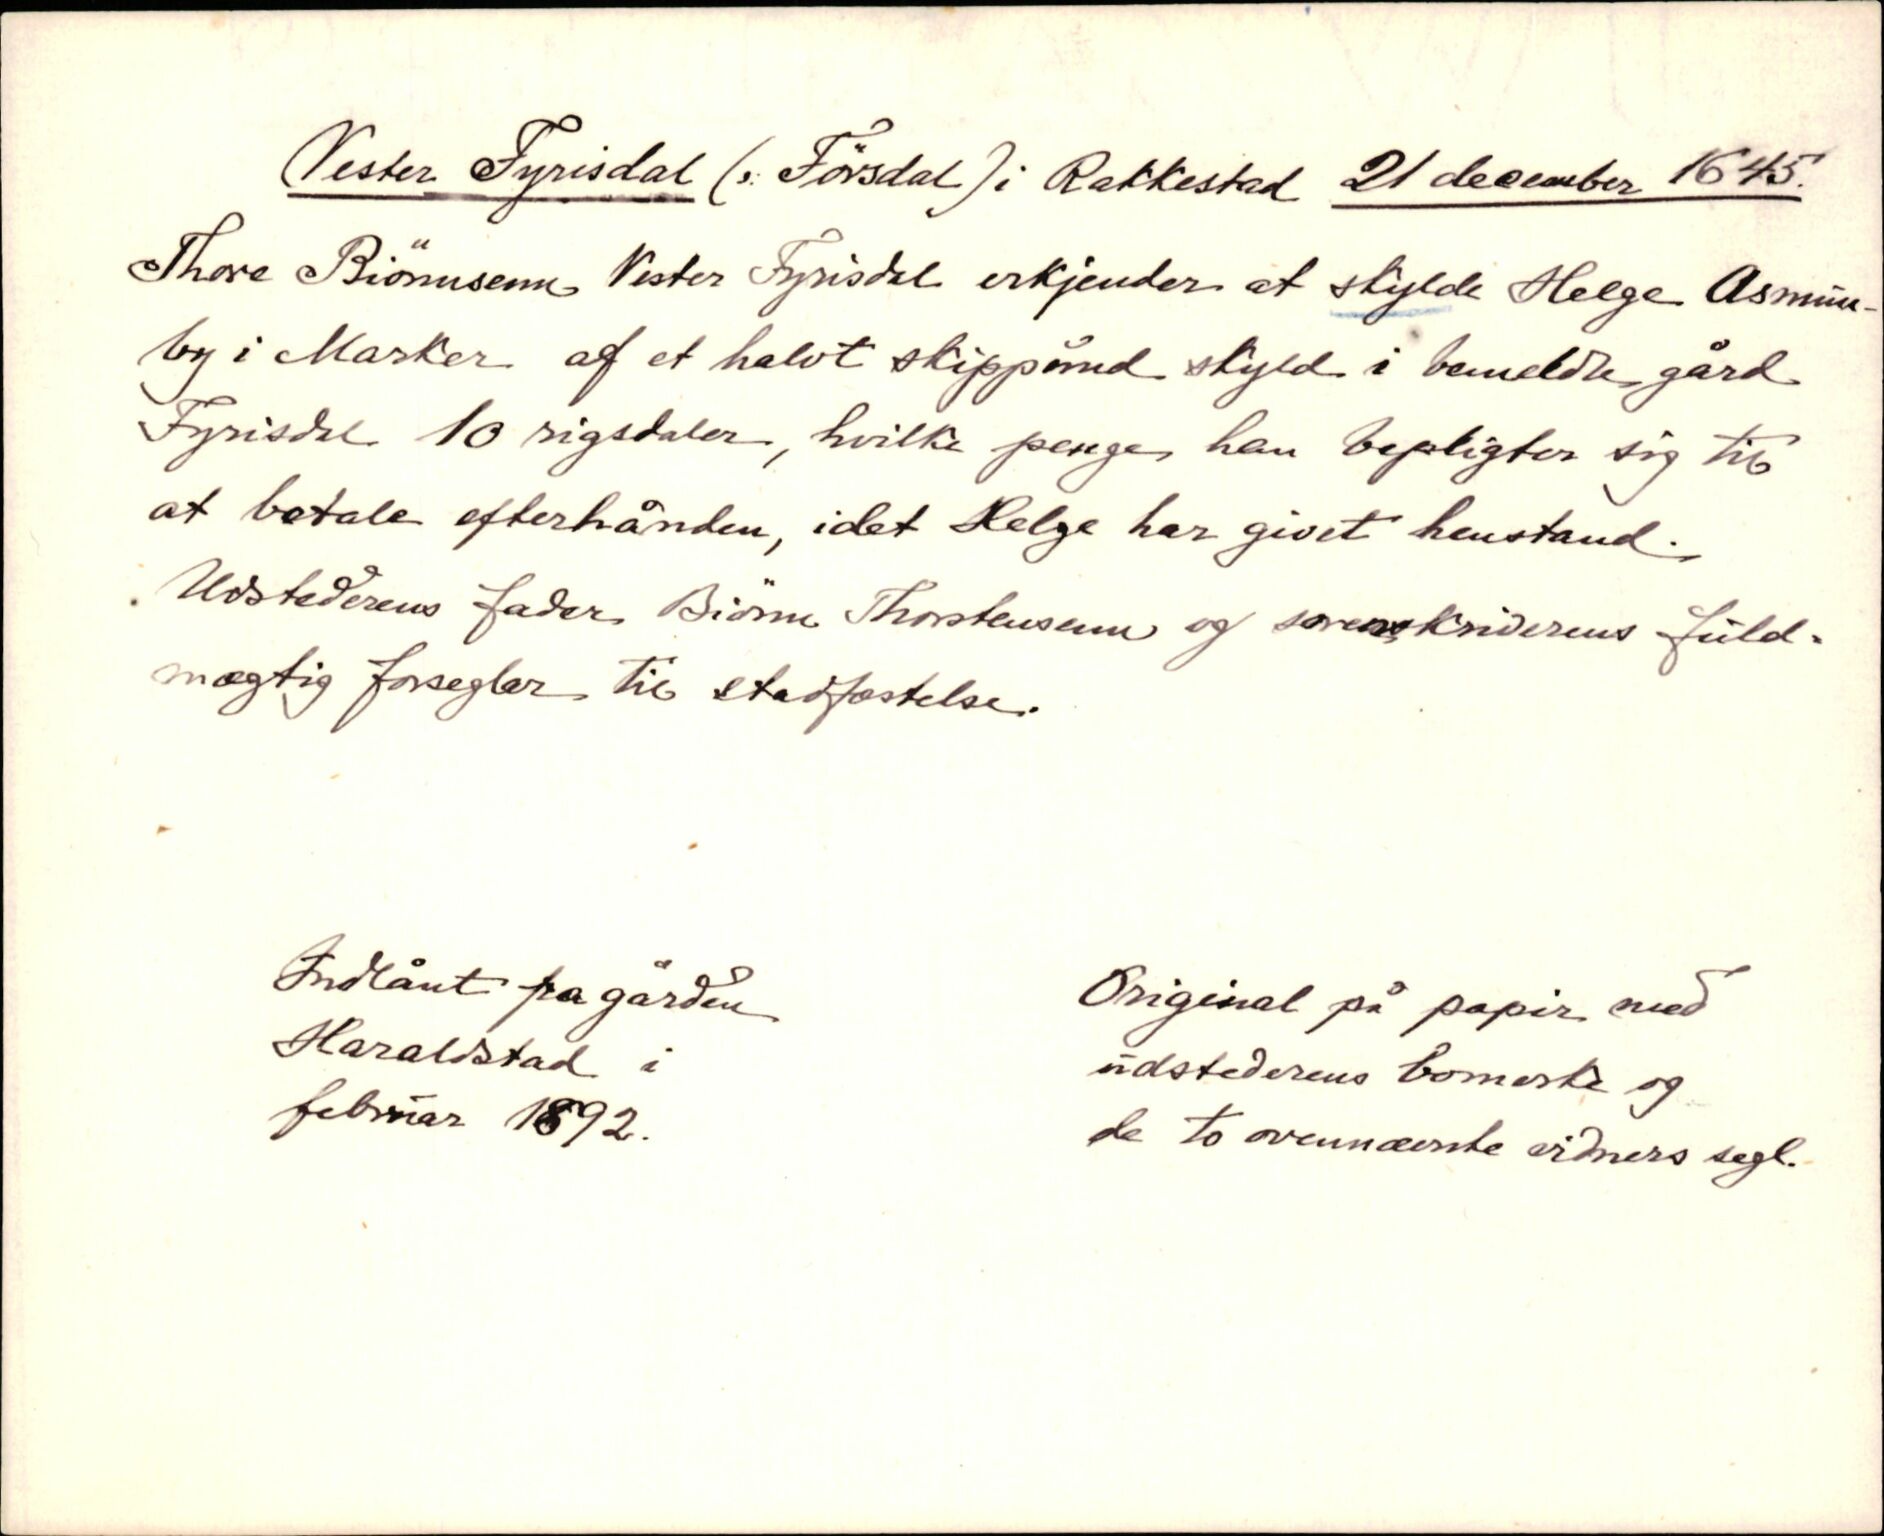 Vester Fyrisdal (ɔ: Försdal) i Rakkestad 21 december 1645.
Thore Biönnsenn Vester Fyrisdal erkjender at skylde Helge Asmün-
by i Marker af et halvt skippünd skyld i bemeldte gård
Fyrisdal 10 rigsdaler, hvilke penge han bepligter sig til
at betale efterhånden, idet Helge har givet henstand.
Udstederens fader Biönn Thorstensenn og sorenskriverens füld-
mægtig forsegler til stadfæstelse.
Indlånt fra gården
Haraldstad i
februar 1892.
Original på papir med
üdstederens bomerke og
de to ovennævnte vidners segl.